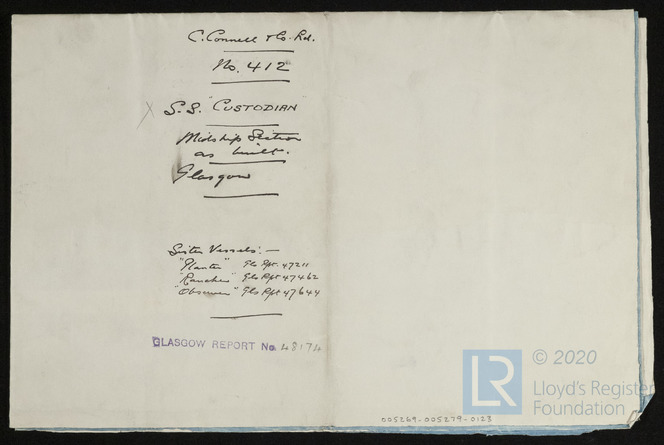 C. Connell & Co. Ld.
No. 412
S.S. "CUSTODIAN"
Midship Section
as built.
Glasgow
Sister Vessels:—
"Planter" Gls Rpt. 47211
"Rancher" Gls Rpt 47462
"Observer" Gls Rpt 47644
GLASGOW REPORT No. 48174
LR
© 2020
Lloyd's Register
Foundation
005269-005279-0123